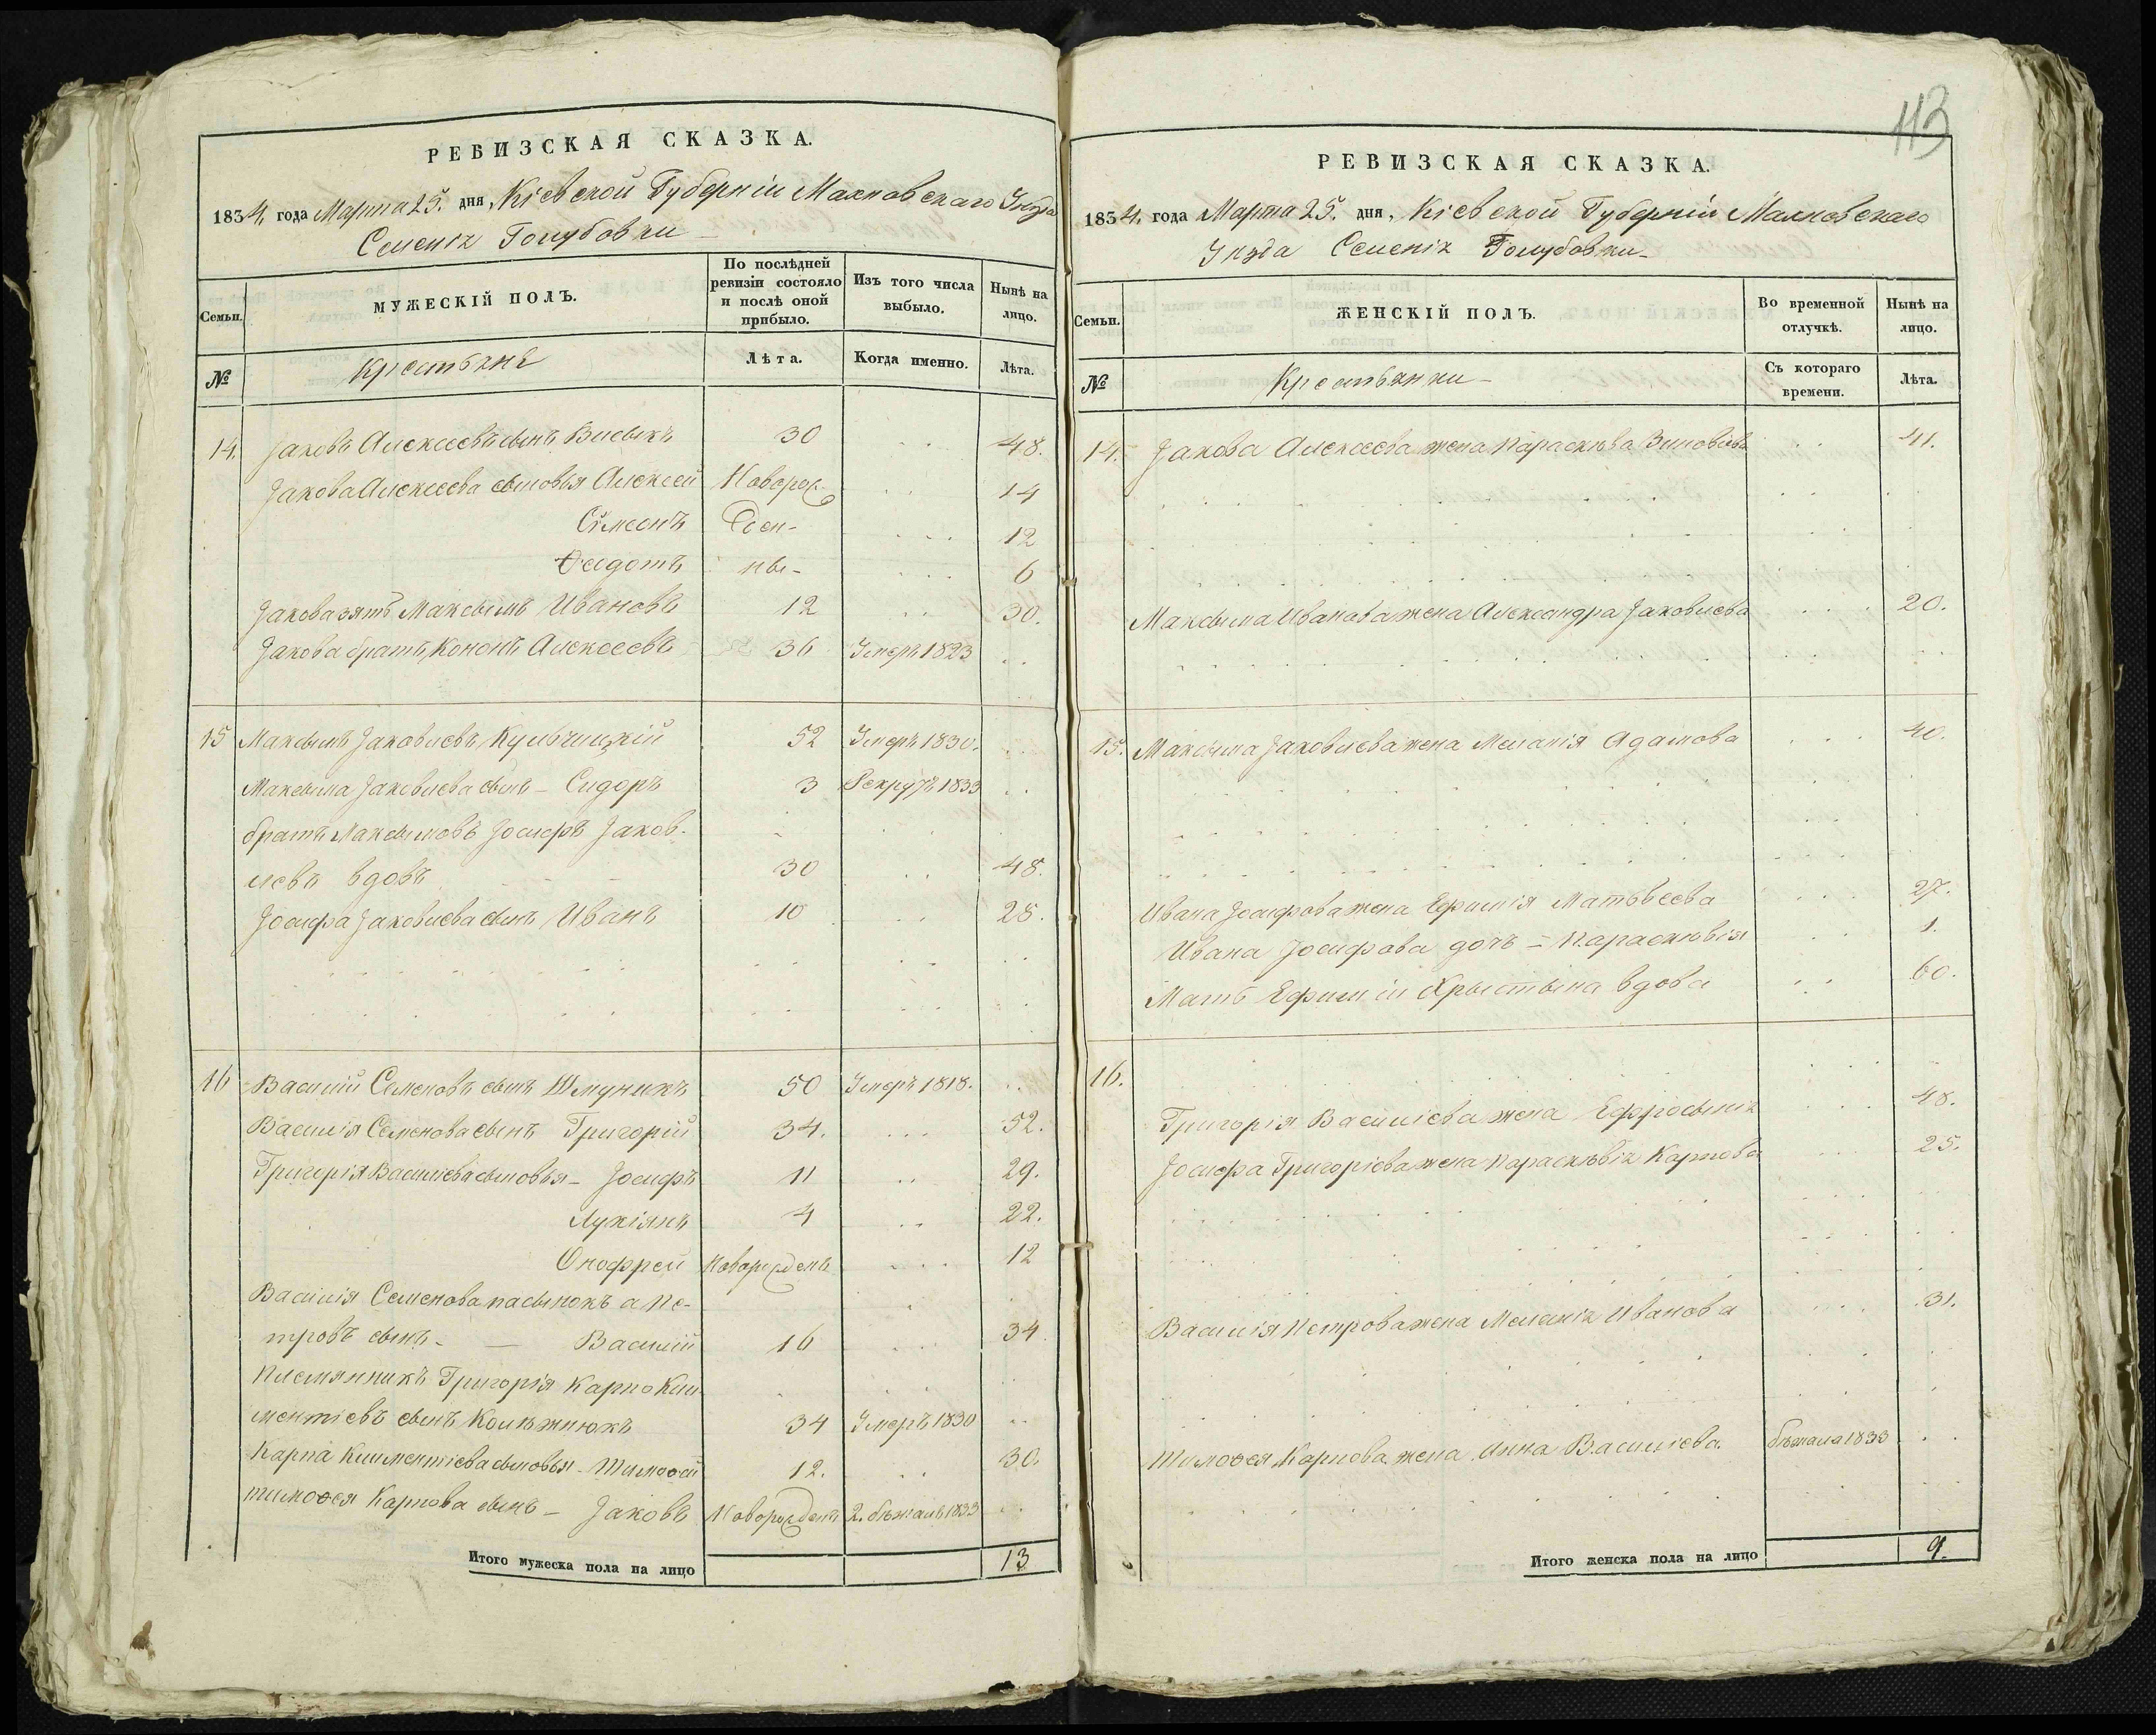 РЕВИЗСКАЯ СКАЗКА.
1834, года Марта 25. дня, Кіевской Губерніи Махновскаго Уѣзда
Селенія Голубовки
Семьи.
МУЖЕСКІЙ ПОЛЪ.
По послѣдней ревизіи состояло и послѣ оной прибыло.
Изъ того числа выбыло.
Нынѣ на лицо.
№
Крестьяне
Лѣта.
Когда именно.
Лѣта.
14. Яковъ Алексеевъ сынъ 30 48.
Якова Алексеева сыновья Алексей Новорож- 14
Симеонъ Ден- 12
Ѳедотъ ны- 6
Якова зять Максымъ Ивановъ 12 30.
Якова братъ, Кононъ Алексеевъ 36 Умеръ 1823
15 Максымъ Яковлевъ Кульчицкій 52 Умеръ 1830.
Максыма Яковлева сынъ - Сидоръ 3 Рекрутъ 1833
братъ Максымовъ Іосифъ Яков-
левъ вдовъ 30 48.
Іосифа Яковлева сынъ Иванъ 10 28.
16 Василій Семеновъ сынъ Шмуникъ 50 Умеръ 1818.
Василія Семенова сынъ Григорій 34. 52.
Григорія Василіева сыновья - Іосифъ 11 29.
Лукіянъ 4 22.
Онофрей Новорожденъ 12
Василія Семенова пасынокъ а Пе-
тровъ сынъ - Василій 16 34.
Племянникъ Григорія Карпо Кли-
ментіевъ сынъ 34 Умеръ 1830
Карпа Климентіева сыновья - Тимоѳей 12. 30.
Тимоѳея Карпова сынъ - Яковъ Новорожденъ 2. бѣжалъ 1833
Итого мужеска пола на лицо 13
113
РЕВИЗСКАЯ СКАЗКА.
1834, года Марта 25. дня, Кіевской Губерніи Махновскаго
Уѣзда Селенія Голубовки
Семьи.
ЖЕНСКІЙ ПОЛЪ.
Во временной отлучкѣ.
Нынѣ на лицо.
№
Крестьянки
Съ котораго времени.
Лѣта.
14. Якова Алексеева жена Параскѣва 41.
Максыма Иванова жена Александра Яковлева 20.
15. Максыма Яковлева жена Меланія Адамова 40.
Ивана Іосифова жена Ефимія Матьвеева 27.
Ивана Іосифова дочь - Параскювія 1.
Мать Ефиміи Хрыстына вдова 60.
16.
Григорія Василіева жена Ефросынія 48.
Іосифа Григоріева жена Параскѣвія Карпова 25.
Василія Петрова жена Меланія Иванова 31.
Тимоѳея Карпова жена Анна Василіева. бѣжала 1833
Итого женска пола на лицо 9.